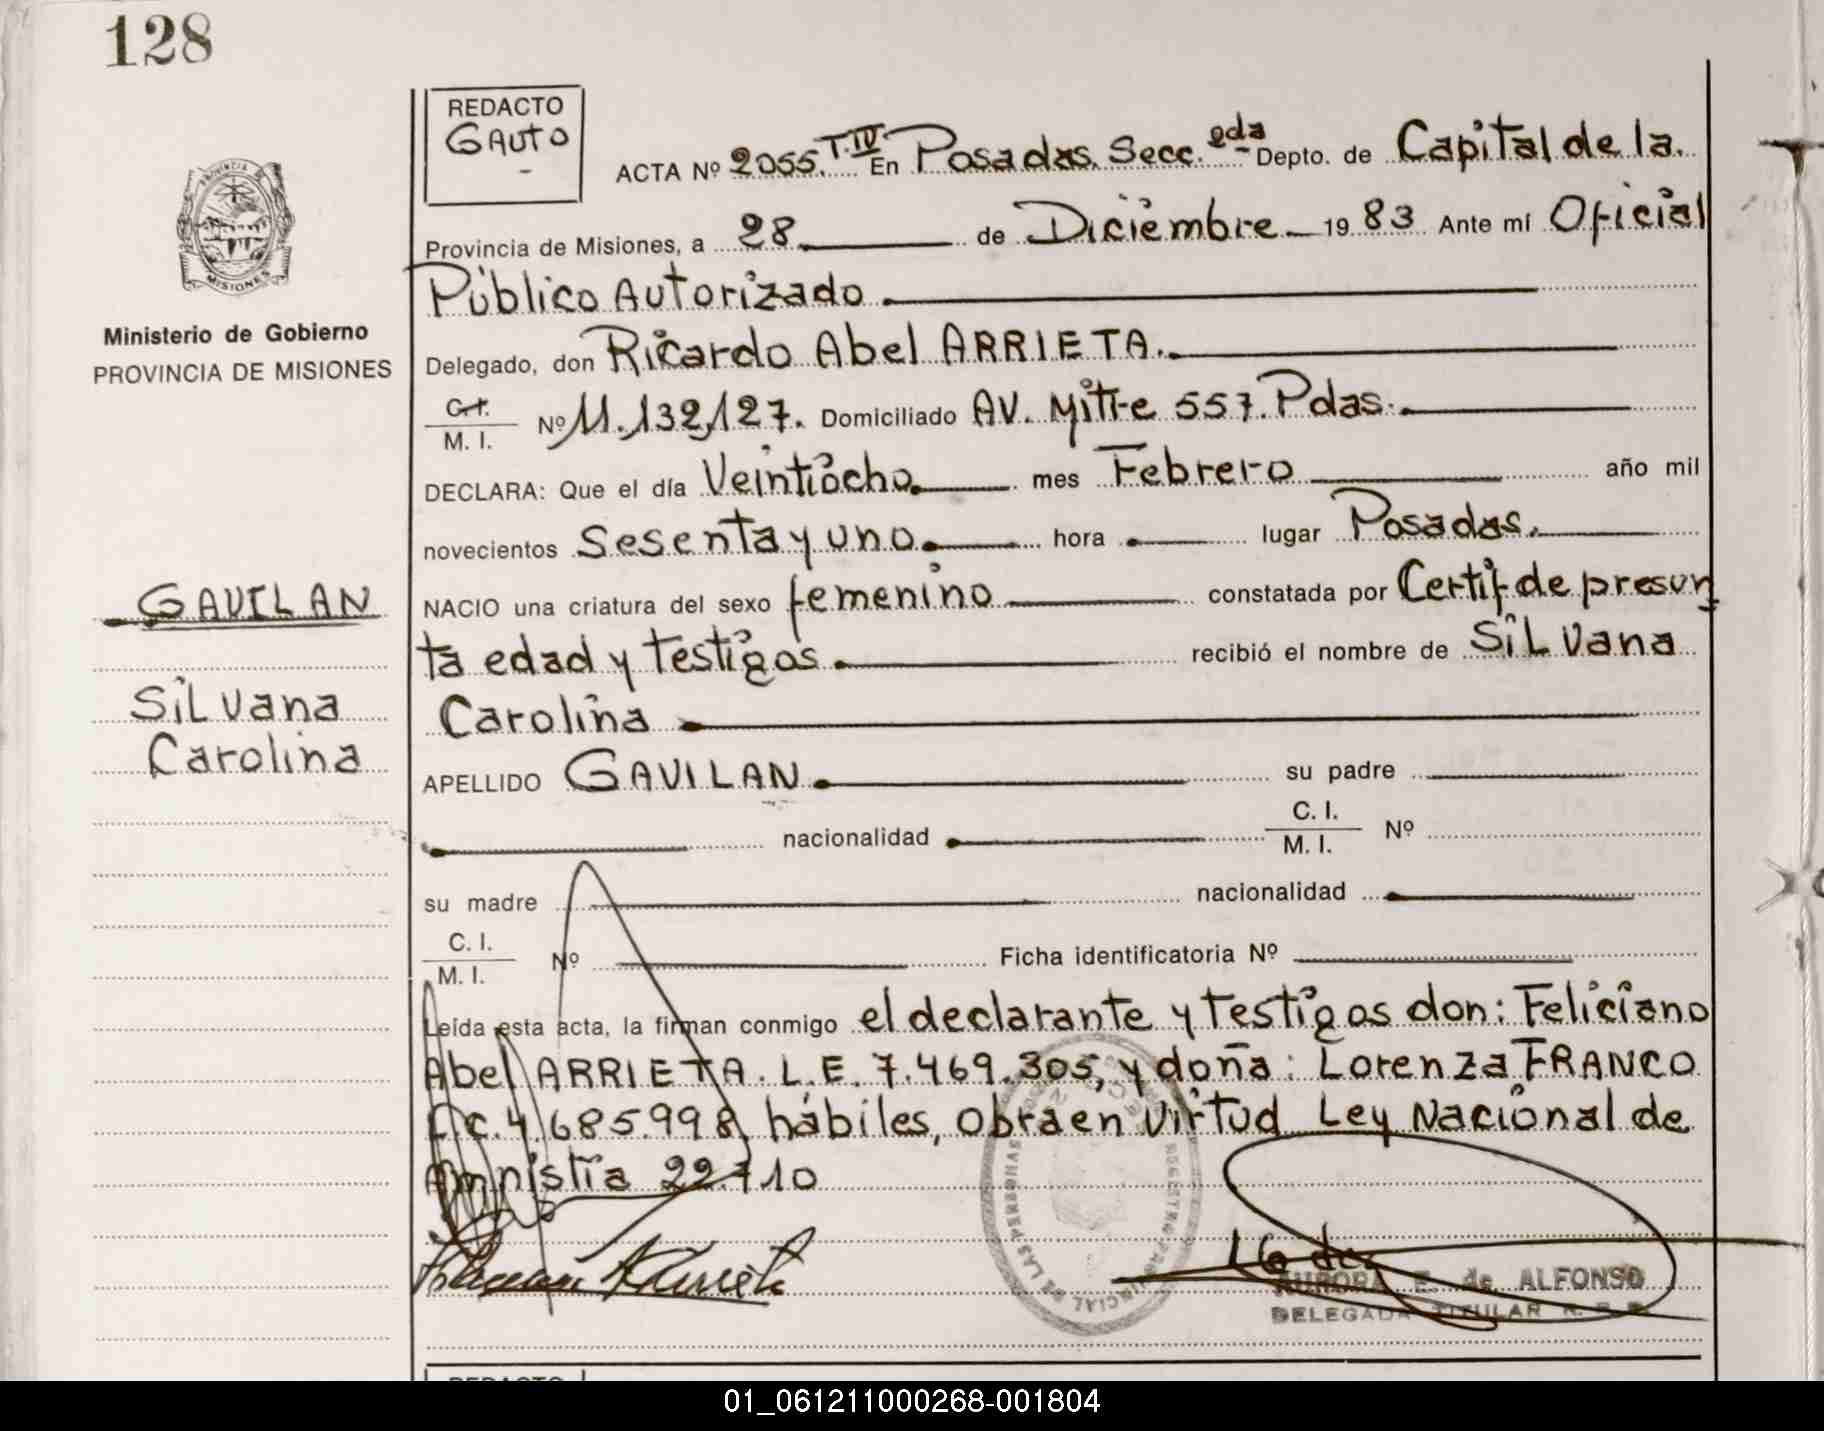 128
REDACTO
GAUTO
ACTA Nº 2055. T.IV. En Posadas. Secc. 2da Depto. de Capital de la
Provincia de Misiones, a 28 de Diciembre 19 83 Ante mí Oficial
Público Autorizado
Delegado, don Ricardo Abel ARRIETA.
C.I.
M. I. Nº 11.132,127. Domiciliado AV. Mitre 557. Pdas.
DECLARA: Que el día Veintiocho mes Febrero año mil
novecientos Sesenta y uno hora lugar Posadas.
NACIO una criatura del sexo femenino constatada por Certif. de presun
ta edad y testigos recibió el nombre de Silvana
Carolina
APELLIDO GAVILAN su padre
nacionalidad C. I.
M. I. Nº
su madre nacionalidad
C. I.
M. I. Nº Ficha identificatoria Nº
Leída esta acta, la firman conmigo el declarante y testigos don: Feliciano
Abel ARRIETA. L.E. 7.469.305, y doña: Lorenza FRANCO
L.C. 4.685.998, hábiles, Obra en virtud Ley Nacional de
Amnistía 22.710
PROVINCIA DE
MISIONES
Ministerio de Gobierno
PROVINCIA DE MISIONES
GAVILAN
Silvana
Carolina
DE LAS PERSONAS
AURORA E. de ALFONSO
DELEGADA TITULAR R. P. P.
REDACTO
01_061211000268-001804